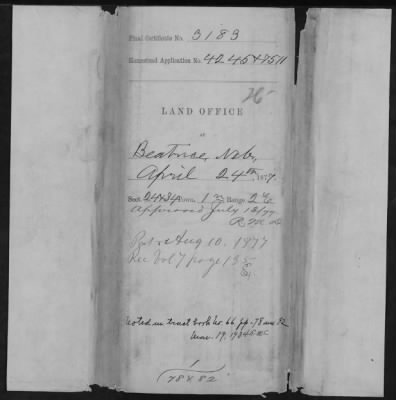 Final Certificate No. 3183
Homestead Application No. 4245 & 8511
26
LAND OFFICE
at
Beatrice, Neb,
April 24th, 1877.
Sect. 24 & 34, Town. 1 N Range 2 E
Approved July 13/77
Pat. Aug 10. 1877
Rec Vol 7 page 135
Noted in tract book No. 66 pp. 78 and 82
78 & 82